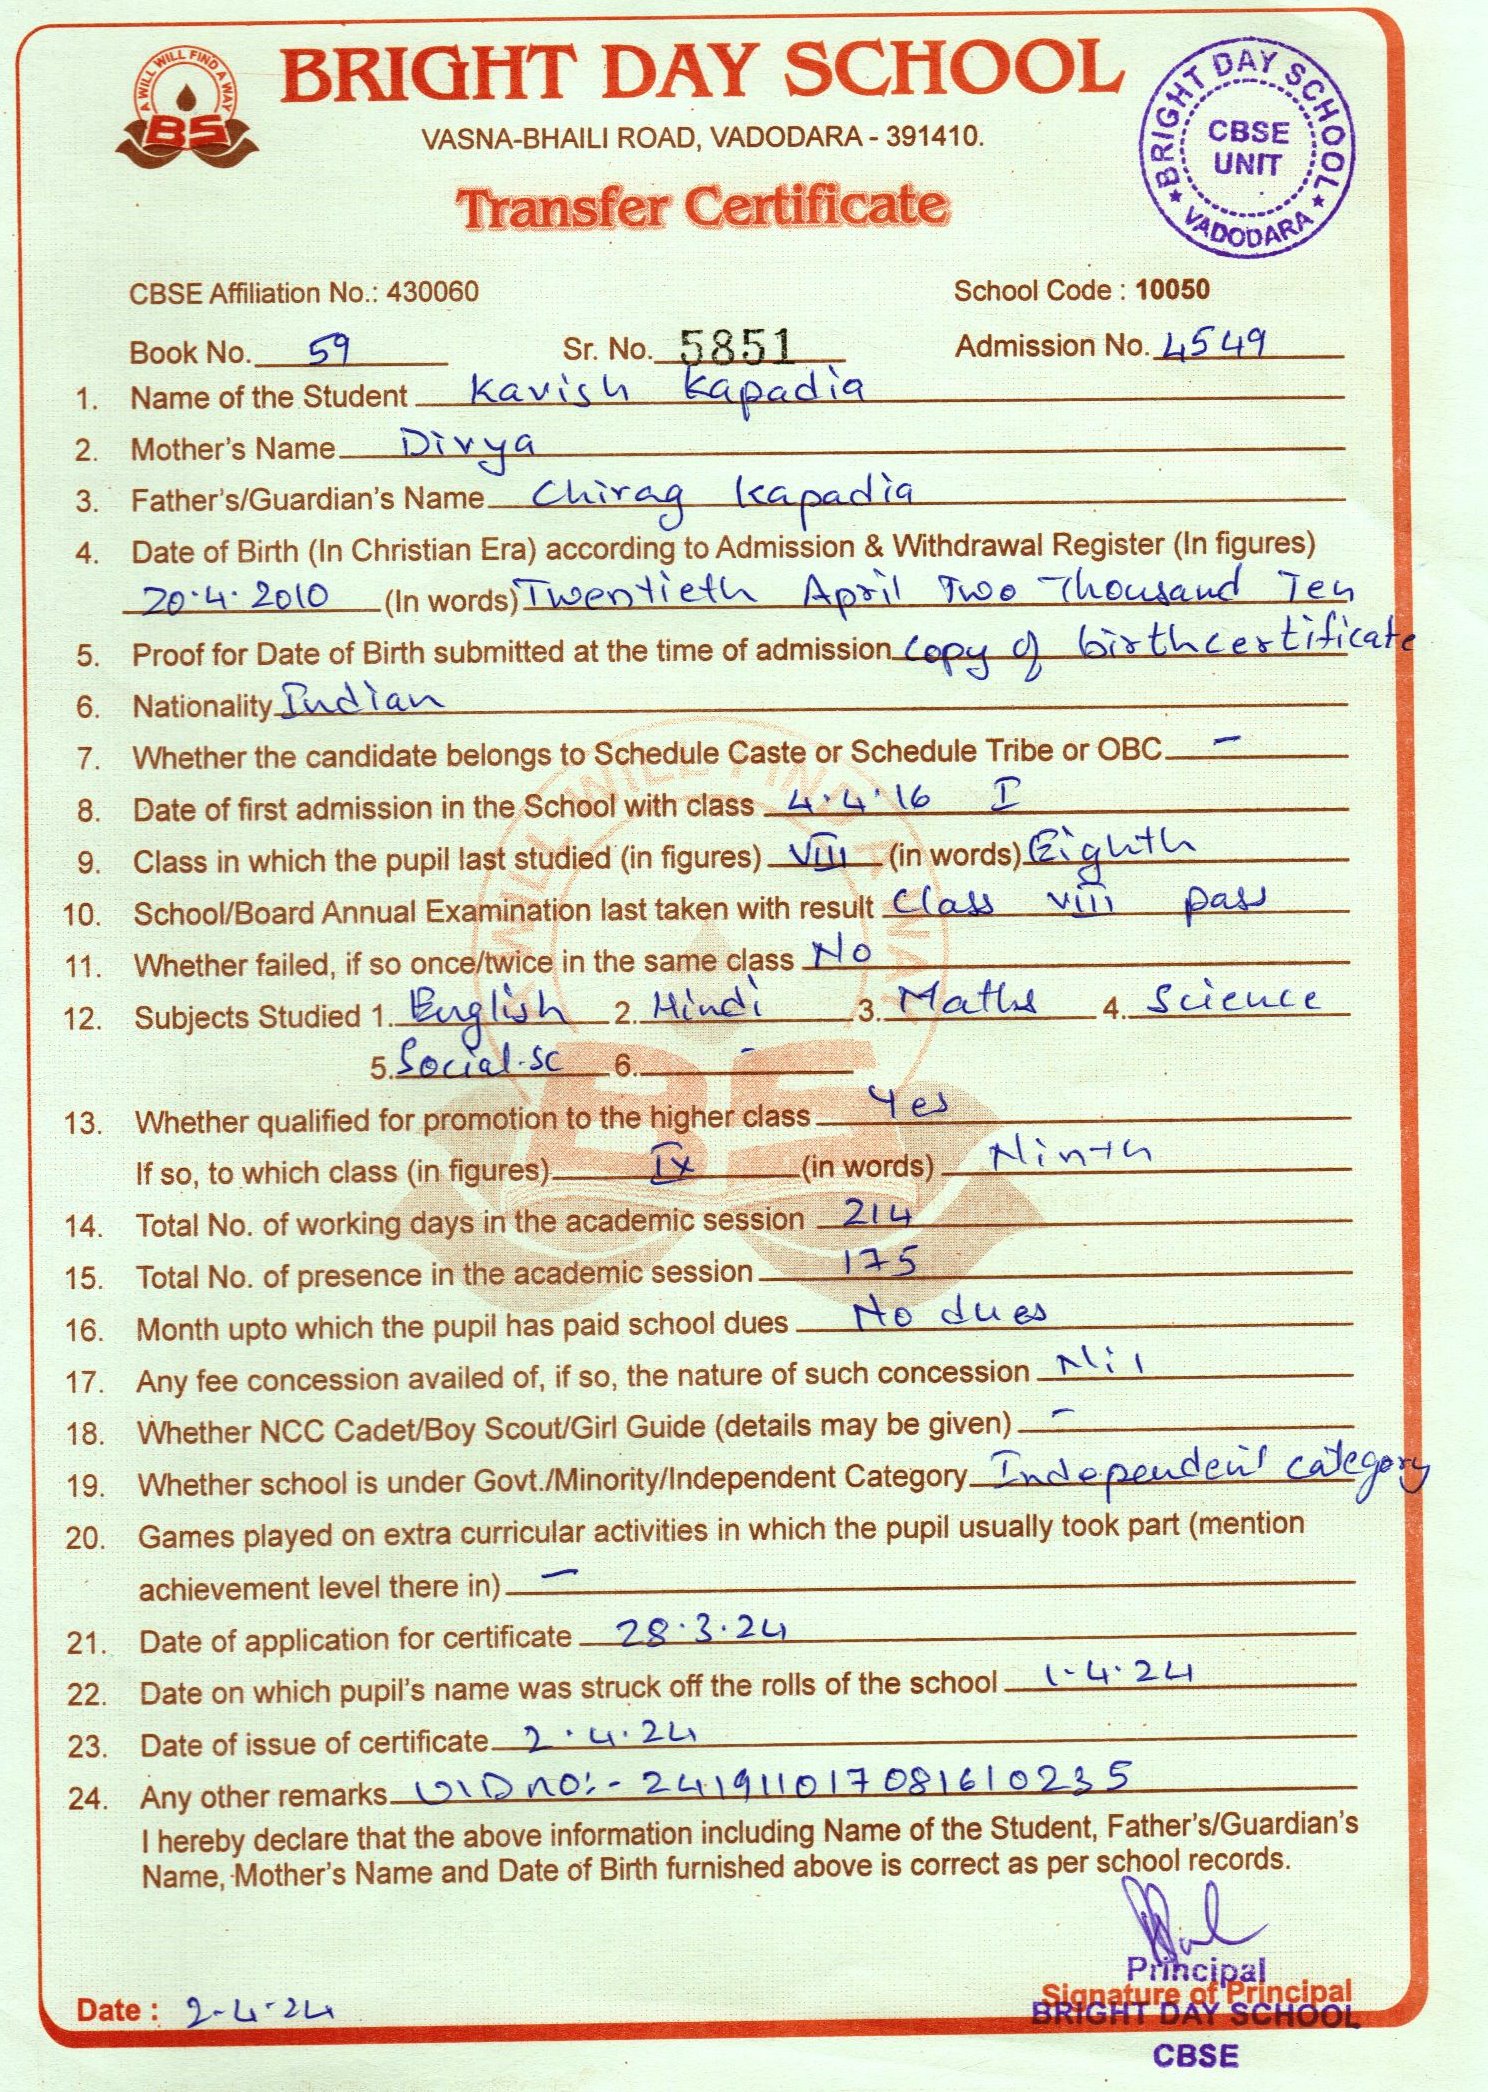 A WILL WILL FIND A WAY
BS
BRIGHT DAY SCHOOL
VASNA-BHAILI ROAD, VADODARA - 391410.
Transfer Certificate
BRIGHT DAY SCHOOL
CBSE
UNIT
★ VADODARA ★
CBSE Affiliation No.: 430060 School Code : 10050
Book No. 59 Sr. No. 5851 Admission No. 4549
1. Name of the Student Kavish Kapadia
2. Mother's Name Divya
3. Father's/Guardian's Name Chirag Kapadia
4. Date of Birth (In Christian Era) according to Admission & Withdrawal Register (In figures)
20.4.2010 (In words) Twentieth April Two Thousand Ten
5. Proof for Date of Birth submitted at the time of admission Copy of birthcertificate
6. Nationality Indian
7. Whether the candidate belongs to Schedule Caste or Schedule Tribe or OBC. -
8. Date of first admission in the School with class 4.4.16 I
9. Class in which the pupil last studied (in figures) VIII (in words) Eighth
10. School/Board Annual Examination last taken with result Class VIII pass
11. Whether failed, if so once/twice in the same class No
12. Subjects Studied 1. English 2. Hindi 3. Maths 4. Science
5. Social.sc 6. -
13. Whether qualified for promotion to the higher class Yes
If so, to which class (in figures) IX (in words) Ninth
14. Total No. of working days in the academic session 214
15. Total No. of presence in the academic session 175
16. Month upto which the pupil has paid school dues No dues
17. Any fee concession availed of, if so, the nature of such concession Nil
18. Whether NCC Cadet/Boy Scout/Girl Guide (details may be given) -
19. Whether school is under Govt./Minority/Independent Category Independent category
20. Games played on extra curricular activities in which the pupil usually took part (mention
achievement level there in) -
21. Date of application for certificate 28.3.24
22. Date on which pupil's name was struck off the rolls of the school 1.4.24
23. Date of issue of certificate 2.4.24
24. Any other remarks UID no:- 241911017081610235
I hereby declare that the above information including Name of the Student, Father's/Guardian's
Name, Mother's Name and Date of Birth furnished above is correct as per school records.
Principal
Signature of Principal
BRIGHT DAY SCHOOL
CBSE
Date : 2-4-24